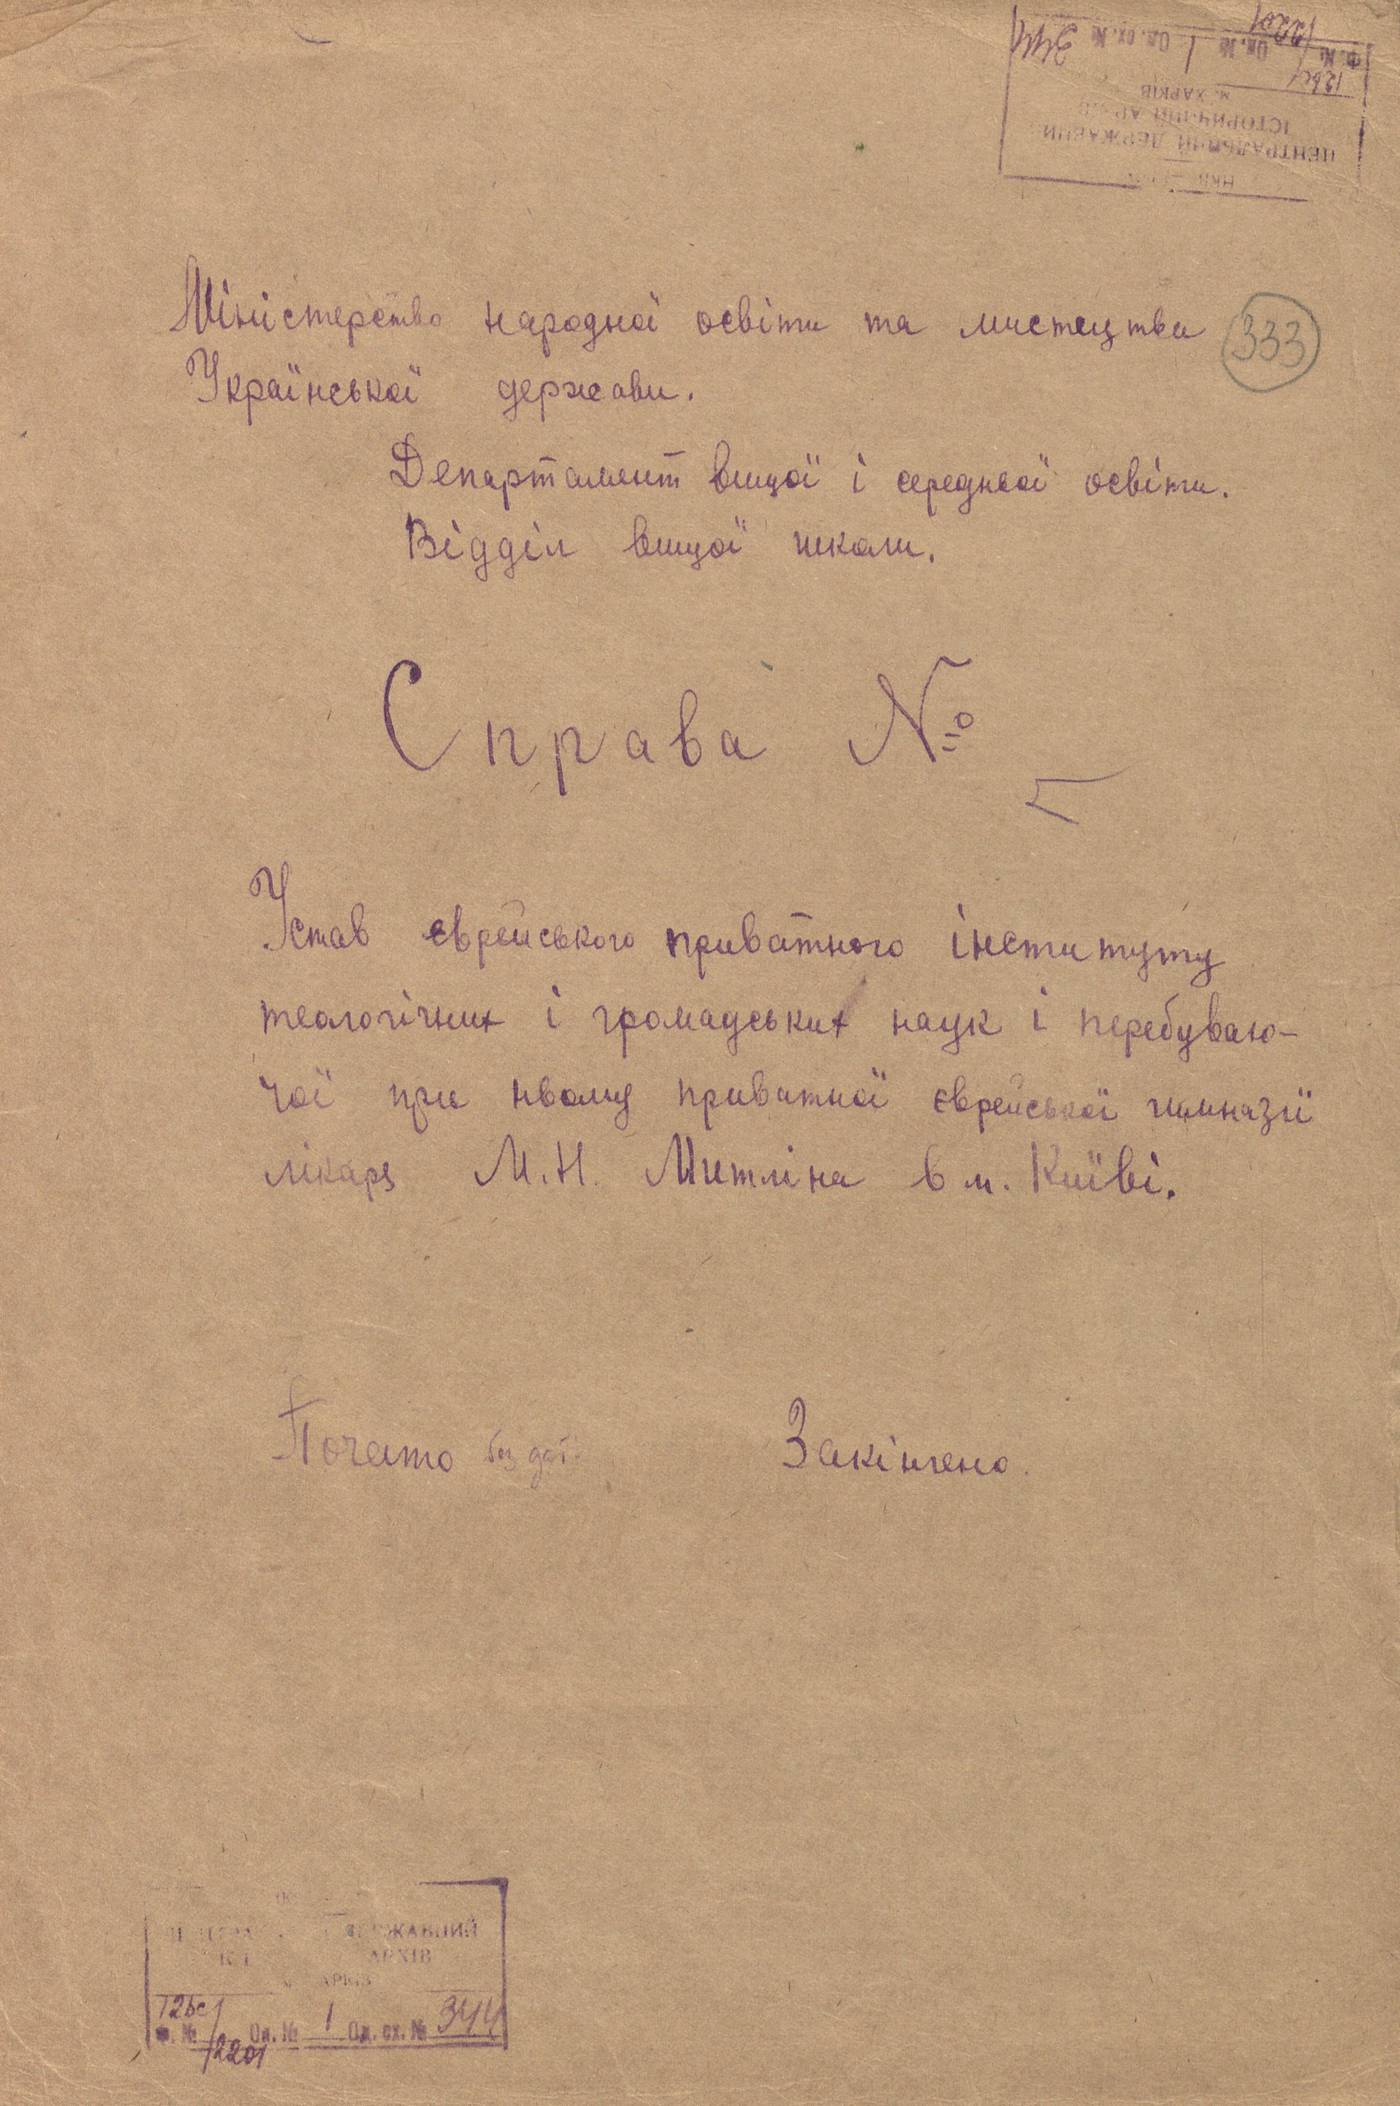 ЦЕНТРАЛЬНИЙ ДЕРЖАВНИЙ
ІСТОРИЧНИЙ АРХІВ
м. ХАРКІВ
Ф. № 12bc/2201 Оп. № 1 Од. сх. № 344
Міністерство народної освіти та мистецтва
333
Української держави.
Департамент вищої і середньої освіти.
Відділ вищої школи.
Справа №
Устав єврейського приватного інституту
теологічних і громадських наук і перебуваю-
чої при ньому приватної єврейської гимназії
лікаря М.Н. Митліна в м. Київі.
Почато без дат.
Закінчено.
ДЕРЖАВНИЙ
АРХІВ
12bc/2201
Ф. № Оп. № 1 Од. сх. № 344